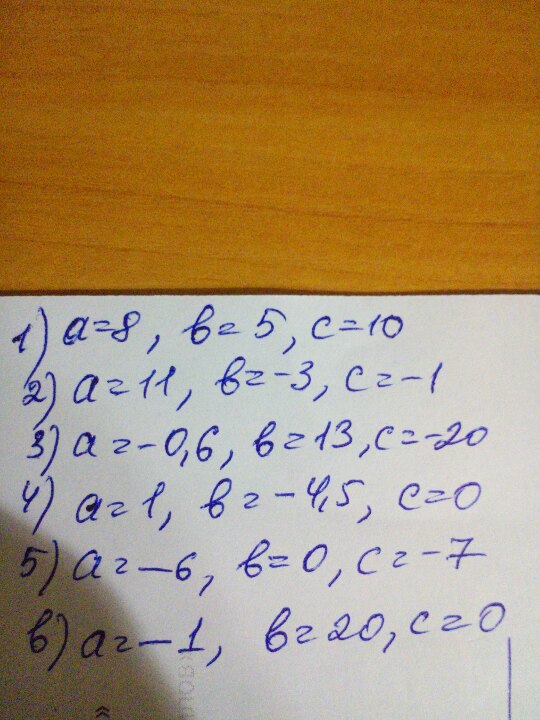 1) a=8, в=5, c=10
2) a=11, в=-3, c=-1
3) a=-0,6, в=13, c=-20
4) a=1, в=-4,5, c=0
5) a=-6, в=0, c=-7
в) a=-1, в=20, c=0